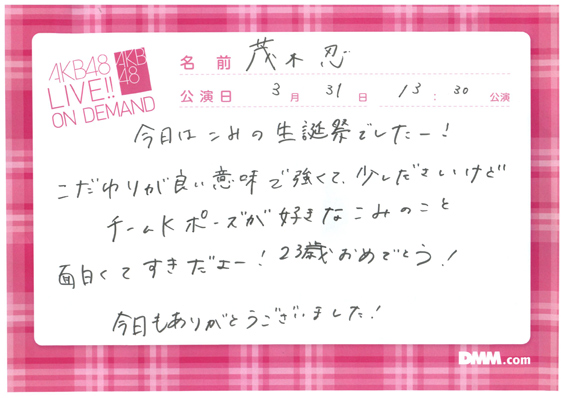 AKB48
LIVE!!
ON DEMAND
AKB
48
名前 茂木 忍
公演日 3月 31日 13:30 公演
今日はこみの生誕祭でしたー!
こだわりが良い意味で強くて、少しださいけど
チームKポーズが好きなこみのこと
面白くてすきだよー!23歳おめでとう!
今日もありがとうございました!
DMM.com